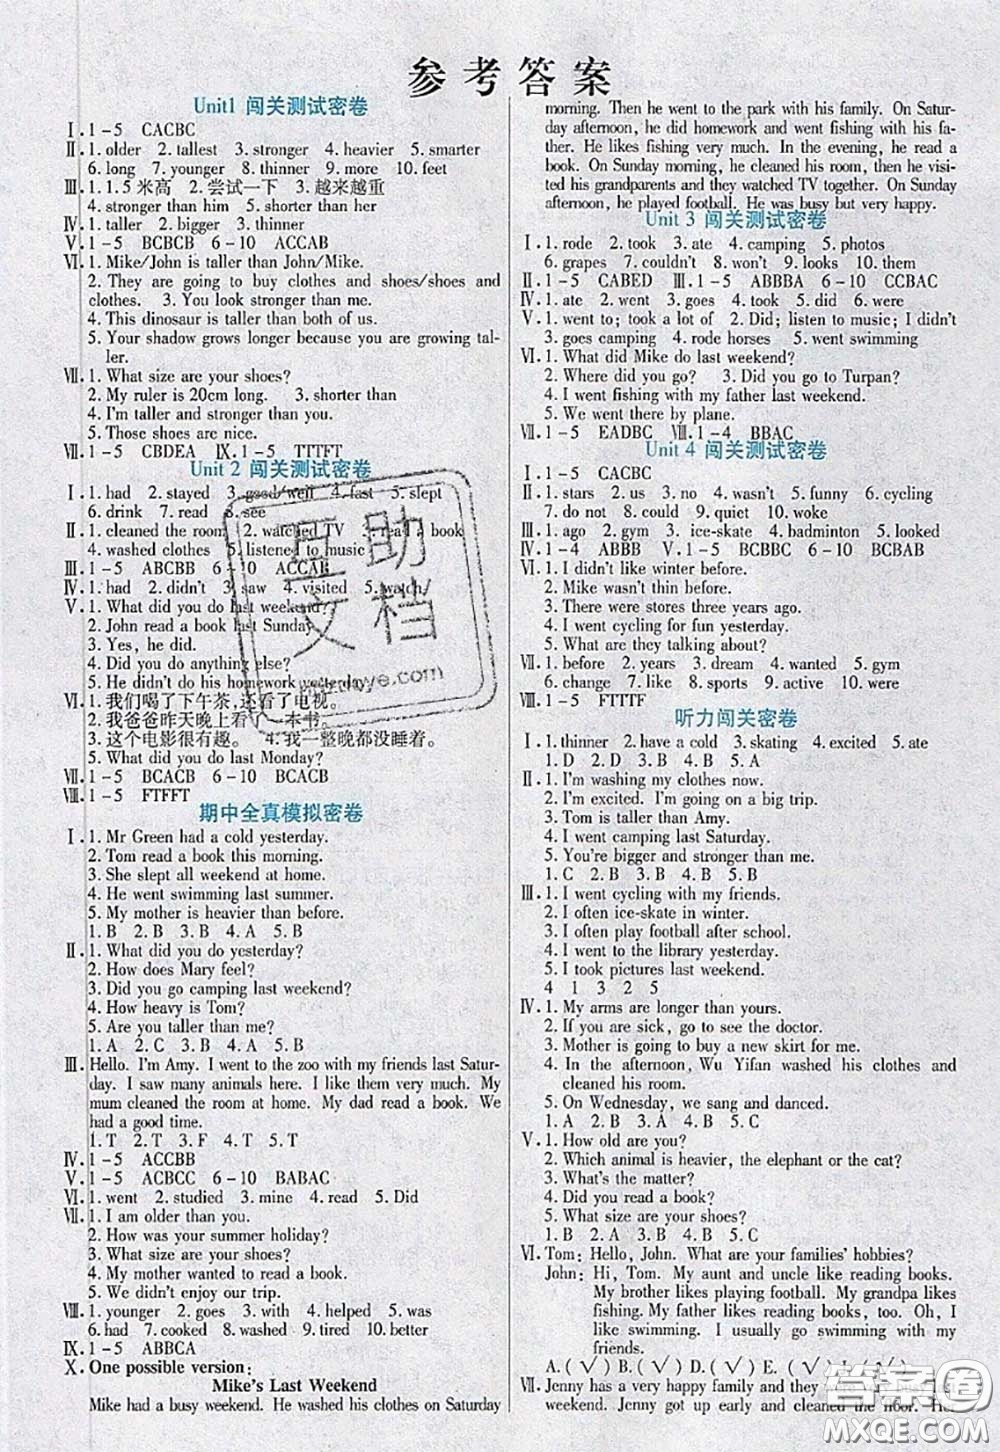 参考答案
Unit1 闯关测试密卷
Ⅰ. 1-5 CACBC
Ⅱ. 1. older 2. tallest 3. stronger 4. heavier 5. smarter
6. long 7. younger 8. thinner 9. more 10. feet
Ⅲ. 1. 1.5米高 2. 尝试一下 3. 越来越重
4. stronger than him 5. shorter than her
Ⅳ. 1. taller 2. bigger 3. thinner
Ⅴ. 1-5 BCBCB 6-10 ACCAB
Ⅵ. 1. Mike/John is taller than John/Mike.
2. They are going to buy clothes and shoes/shoes and
clothes. 3. You look stronger than me.
4. This dinosaur is taller than both of us.
5. Your shadow grows longer because you are growing tal-
ler.
Ⅶ. 1. What size are your shoes?
2. My ruler is 20cm long. 3. shorter than
4. I'm taller and stronger than you.
5. Those shoes are nice.
Ⅷ. 1-5 CBDEA Ⅸ. 1-5 TTTFT
Unit 2 闯关测试密卷
Ⅰ. 1. had 2. stayed 3. good/well 4. fast 5. slept
6. drink 7. read 8. see
Ⅱ. 1. cleaned the room 2. watched TV 3. read a book
4. washed clothes 5. listened to music
Ⅲ. 1-5 ABCBB 6-10 ACCAB
Ⅳ. 1. had 2. didn't 3. saw 4. visited 5. watch
Ⅴ. 1. What did you do last weekend?
2. John read a book last Sunday.
3. Yes, he did.
4. Did you do anything else?
5. He didn't do his homework yesterday.
Ⅵ. 1. 我们喝了下午茶,还看了电视。
2. 我爸爸昨天晚上看了一本书。
3. 这个电影很有趣。 4. 我一整晚都没睡着。
5. What did you do last Monday?
Ⅶ. 1-5 BCACB 6-10 BCACB
Ⅷ. 1-5 FTFFT
期中全真模拟密卷
Ⅰ. 1. Mr Green had a cold yesterday.
2. Tom read a book this morning.
3. She slept all weekend at home.
4. He went swimming last summer.
5. My mother is heavier than before.
1. B 2. B 3. B 4. A 5. B
Ⅱ. 1. What did you do yesterday?
2. How does Mary feel?
3. Did you go camping last weekend?
4. How heavy is Tom?
5. Are you taller than me?
1. A 2. C 3. B 4. C 5. B
Ⅲ. Hello. I'm Amy. I went to the zoo with my friends last Satur-
day. I saw many animals here. I like them very much. My
mum cleaned the room at home. My dad read a book. We
had a good time.
1. T 2. T 3. F 4. T 5. T
Ⅳ. 1-5 ACCBB
Ⅴ. 1-5 ACBCC 6-10 BABAC
Ⅵ. 1. went 2. studied 3. mine 4. read 5. Did
Ⅶ. 1. I am older than you.
2. How was your summer holiday?
3. What size are your shoes?
4. My mother wanted to read a book.
5. We didn't enjoy our trip.
Ⅷ. 1. younger 2. goes 3. with 4. helped 5. was
6. had 7. cooked 8. washed 9. tired 10. better
Ⅸ. 1-5 ABBCA
Ⅹ. One possible version:
Mike's Last Weekend
Mike had a busy weekend. He washed his clothes on Saturday
morning. Then he went to the park with his family. On Satur-
day afternoon, he did homework and went fishing with his fa-
ther. He likes fishing very much. In the evening, he read a
book. On Sunday morning, he cleaned his room, then he visi-
ted his grandparents and they watched TV together. On Sunday
afternoon, he played football. He was busy but very happy.
Unit 3 闯关测试密卷
Ⅰ. 1. rode 2. took 3. ate 4. camping 5. photos
6. grapes 7. couldn't 8. won 9. looks 10. them
Ⅱ. 1-5 CABED Ⅲ. 1-5 ABBBA 6-10 CCBAC
Ⅳ. 1. ate 2. went 3. goes 4. took 5. did 6. were
Ⅴ. 1. went to; took a lot of 2. Did; listen to music; I didn't
3. goes camping 4. rode horses 5. went swimming
Ⅵ. 1. What did Mike do last weekend?
2. Where did you go? 3. Did you go to Turpan?
4. I went fishing with my father last weekend.
5. We went there by plane.
Ⅶ. 1-5 EADBC Ⅷ. 1-4 BBAC
Unit 4 闯关测试密卷
Ⅰ. 1-5 CACBC
Ⅱ. 1. stars 2. us 3. no 4. wasn't 5. funny 6. cycling
7. do not 8. could 9. quiet 10. woke
Ⅲ. 1. ago 2. gym 3. ice-skate 4. badminton 5. looked
Ⅳ. 1-4 ABBB Ⅴ. 1-5 BCBBC 6-10 BCBAB
Ⅵ. 1. I didn't like winter before.
2. Mike wasn't thin before.
3. There were stores three years ago.
4. I went cycling for fun yesterday.
5. What are they talking about?
Ⅶ. 1. before 2. years 3. dream 4. wanted 5. gym
6. change 7. like 8. sports 9. active 10. were
Ⅷ. 1-5 FTTTF
听力闯关密卷
Ⅰ. 1. thinner 2. have a cold 3. skating 4. excited 5. ate
1. D 2. D 3. B 4. B 5. A
Ⅱ. 1. I'm washing my clothes now.
2. I'm excited. I'm going on a big trip.
3. Tom is taller than Amy.
4. I went camping last Saturday.
5. You're bigger and stronger than me.
1. C 2. B 3. B 4. A 5. B
Ⅲ. 1. I went cycling with my friends.
2. I often ice-skate in winter.
3. I often play football after school.
4. I went to the library yesterday.
5. I took pictures last weekend.
4 1 3 2 5
Ⅳ. 1. My arms are longer than yours.
2. If you are sick, go to see the doctor.
3. Mother is going to buy a new skirt for me.
4. In the afternoon, Wu Yifan washed his clothes and
cleaned his room.
5. On Wednesday, we sang and danced.
1. A 2. B 3. A 4. B 5. B
Ⅴ. 1. How old are you?
2. Which animal is heavier, the elephant or the cat?
3. What's the matter?
4. Did you read a book?
5. What size are your shoes?
1. B 2. A 3. B 4. A 5. C
Ⅵ. Tom: Hello, John. What are your families' hobbies?
John: Hi, Tom. My aunt and uncle like reading books.
My brother likes playing football. My grandpa likes
fishing. My father likes reading books, too. Oh, I
like swimming. I usually go swimming with my
friends.
A. (√) B. (√) D. (√) E. (√) (√)
Ⅶ. Jenny has a very happy family and they
weekend. Jenny got up early and cleaned the floor. He
互助文档
答案圈
MXQE.COM